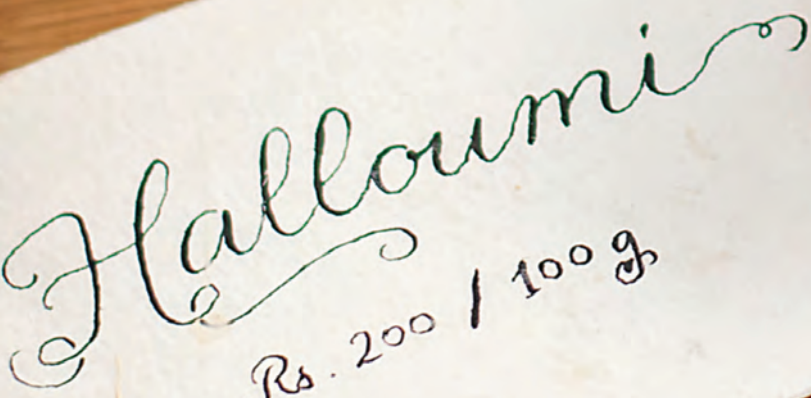 Halloumi
Rs. 200 / 100 g